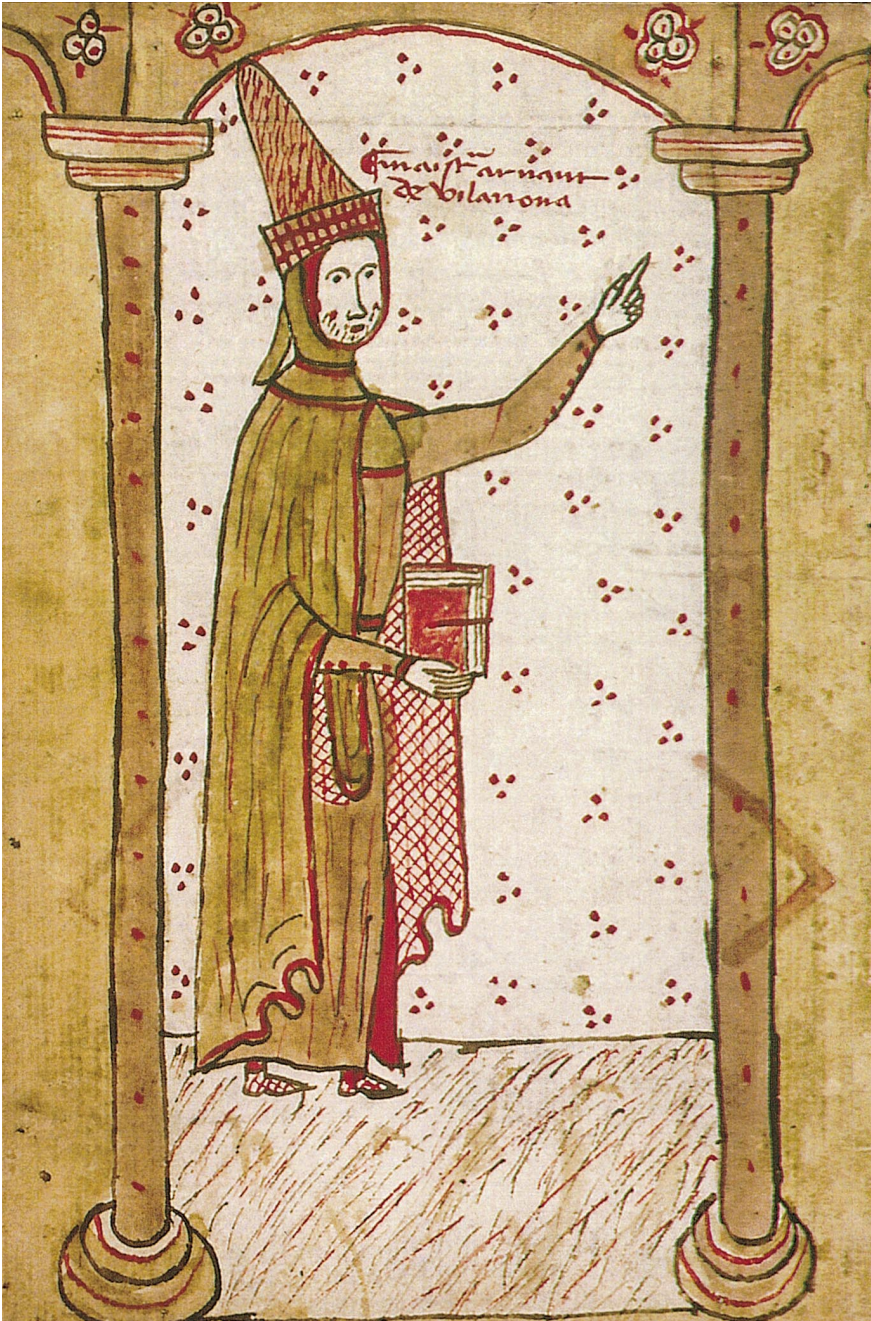 Emaistr̃ arnaut
de vilanoua